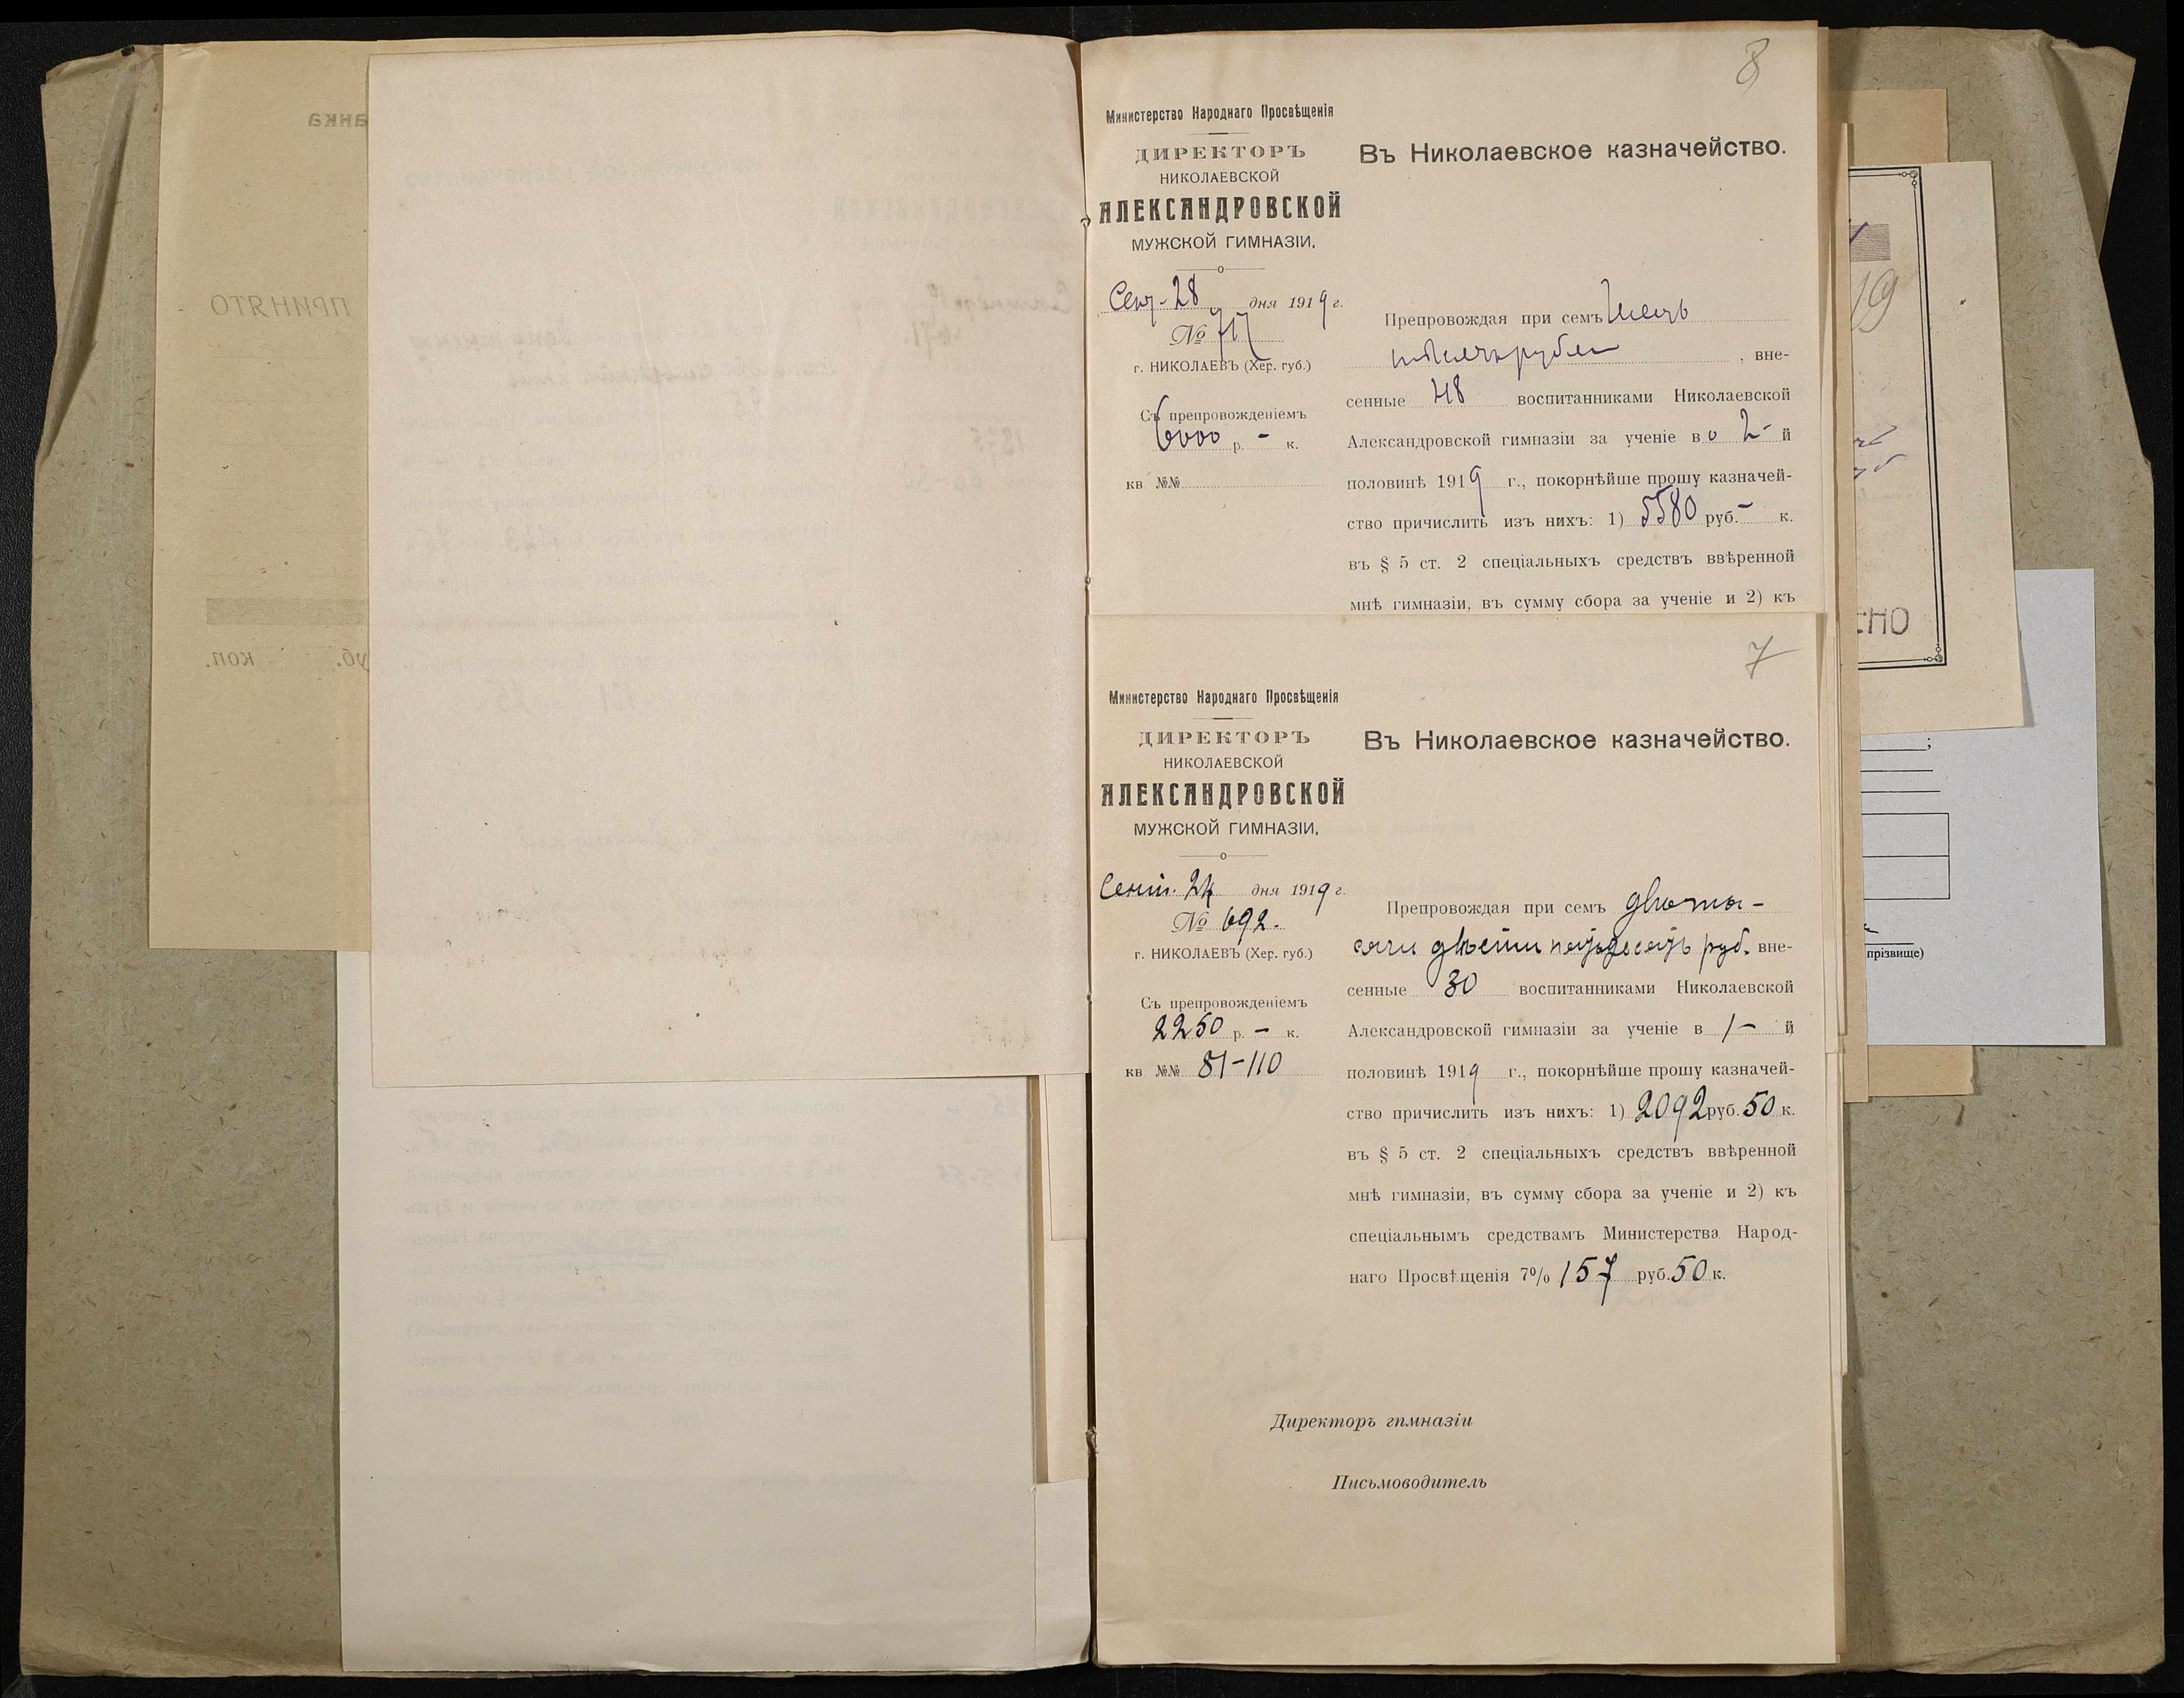 8
Министерство Народнаго Просвѣщенія
ДИРЕКТОРЪ
НИКОЛАЕВСКОЙ
АЛЕКСАНДРОВСКОЙ
МУЖСКОЙ ГИМНАЗІИ.
Сент. 28 дня 1919 г.
№ 717
г. НИКОЛАЕВЪ (Хер. губ.)
Съ препровожденіемъ
6000 р. – к.
кв. №№
Въ Николаевское казначейство.
Препровождая при семъ шесть
тысячъ рублей, вне-
сенные 48 воспитанниками Николаевской
Александровской гимназіи за ученіе во 2-й
половинѣ 1919 г., покорнѣйше прошу казначей-
ство причислить изъ нихъ: 1) 5580 руб. – к.
въ § 5 ст. 2 спеціальныхъ средствъ ввѣренной
мнѣ гимназіи, въ сумму сбора за ученіе и 2) къ
7
Министерство Народнаго Просвѣщенія
ДИРЕКТОРЪ
НИКОЛАЕВСКОЙ
АЛЕКСАНДРОВСКОЙ
МУЖСКОЙ ГИМНАЗІИ.
Сент. 24 дня 1919 г.
№ 692.
г. НИКОЛАЕВЪ (Хер. губ.)
Съ препровожденіемъ
2250 р. – к.
кв. №№ 81-110
Въ Николаевское казначейство.
Препровождая при семъ двѣ ты-
сячи двѣсти пятьдесятъ руб. вне-
сенные 30 воспитанниками Николаевской
Александровской гимназіи за ученіе в 1-й
половинѣ 1919 г., покорнѣйше прошу казначей-
ство причислить изъ нихъ: 1) 2092 руб. 50 к.
въ § 5 ст. 2 спеціальныхъ средствъ ввѣренной
мнѣ гимназіи, въ сумму сбора за ученіе и 2) къ
спеціальнымъ средствамъ Министерства Народ-
наго Просвѣщенія 7% 157 руб. 50 к.
Директоръ гимназіи
Письмоводитель
19
ЕНО
прізвище)
ПРИНЯТО
анка
уб. коп.